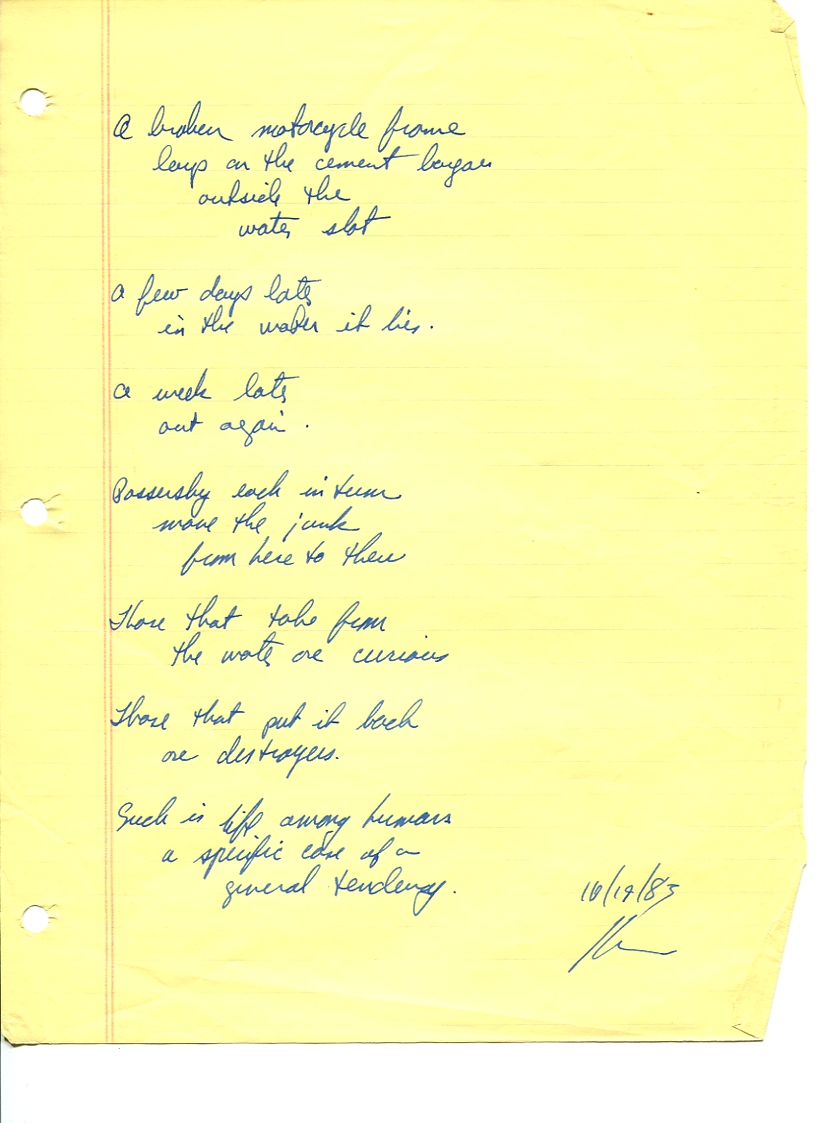 A broken motorcycle frame
on the cement
outside the
water slot
a few days later
in the water it lies.
a week later
out again.
Passersby each in turn
move the junk
from here to there
Those that take from
the water are curious
Those that put it back
are destroyers.
Such is life among humans
a specific case of a
general tendency.
10/19/83